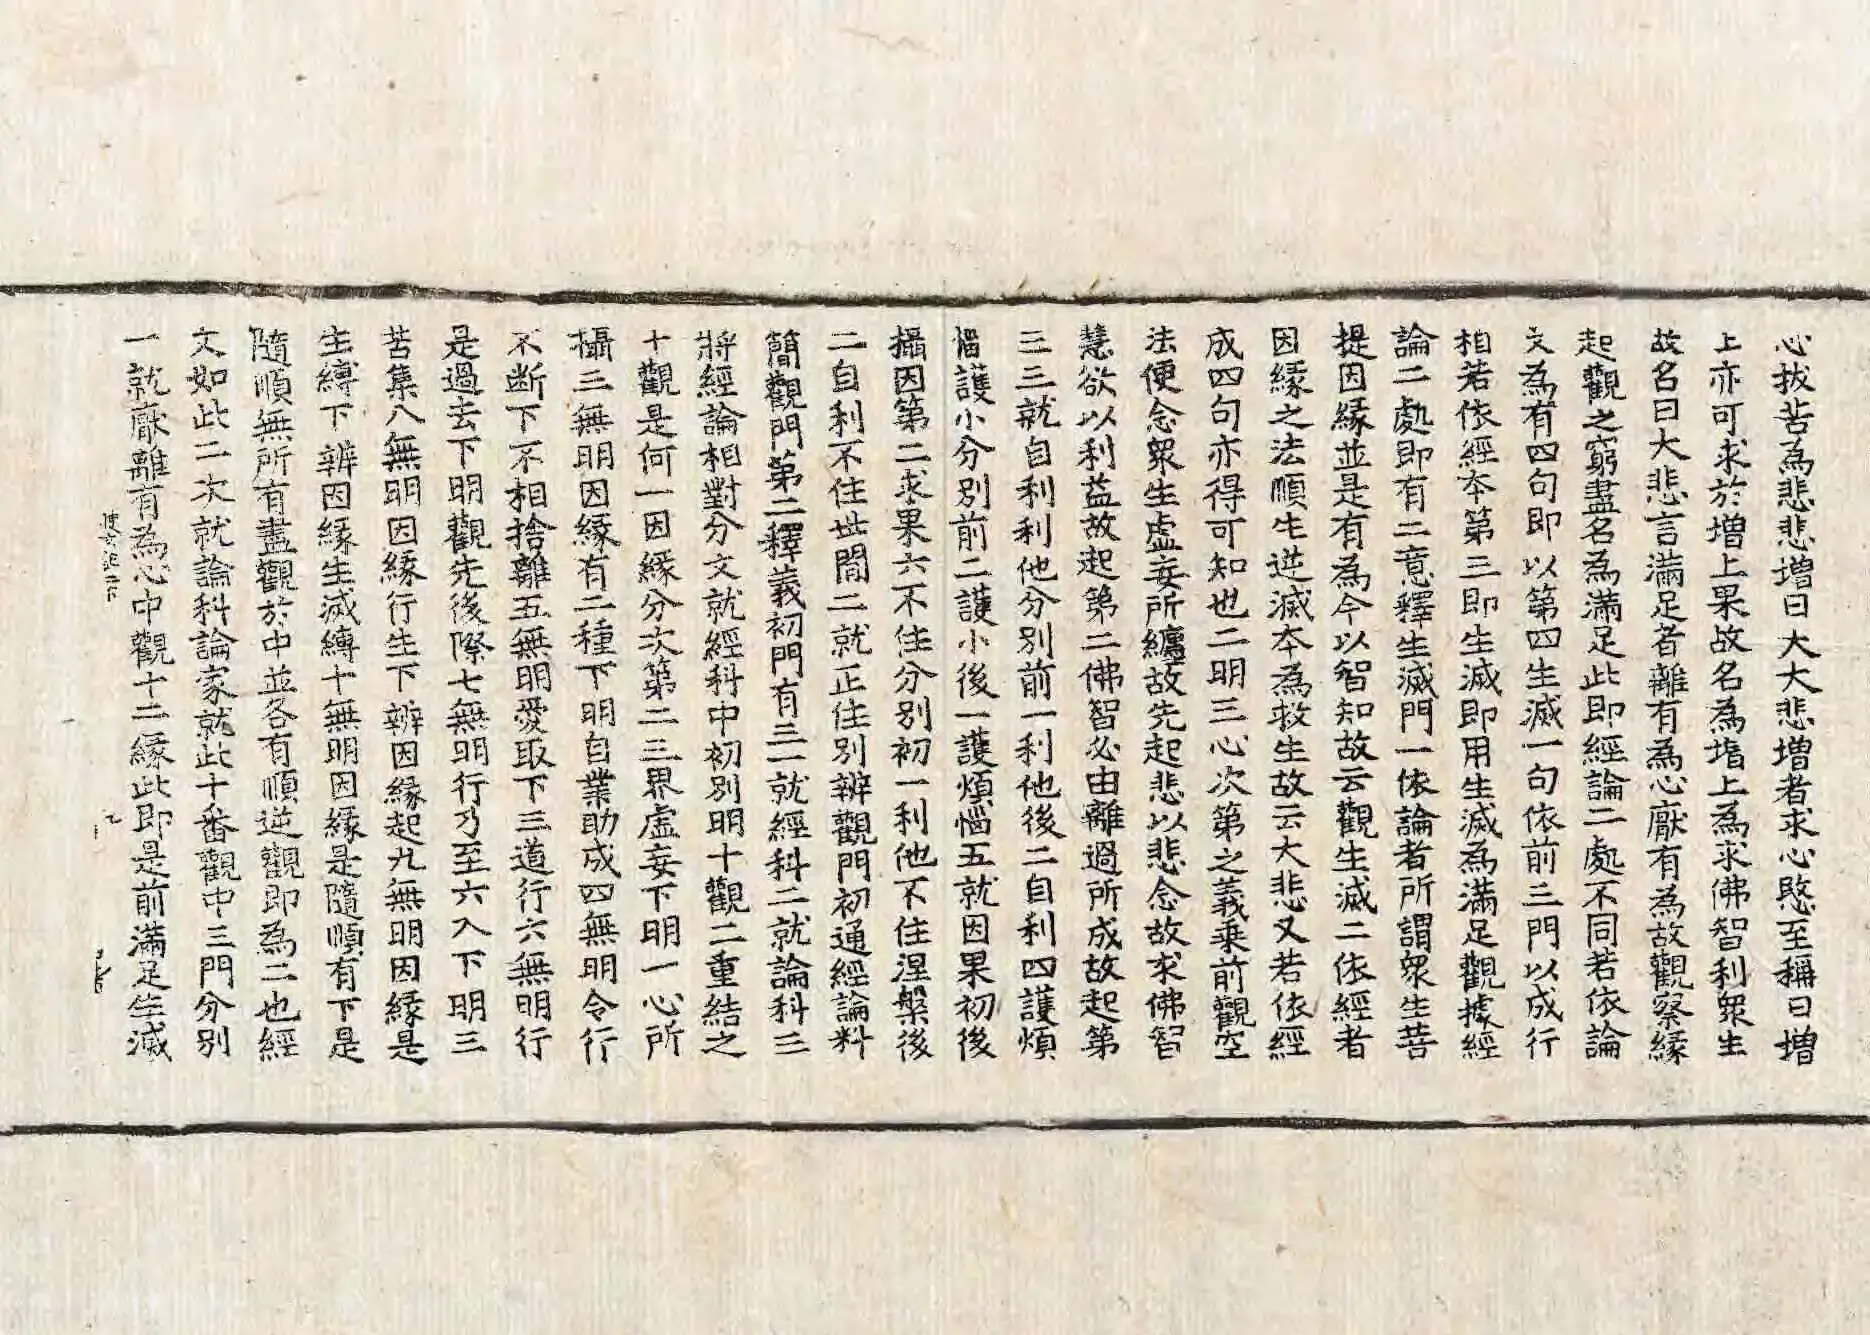 心拔苦為悲悲增曰大大悲增者求心慇至稱曰增
上亦可求於增上果故名為增上為求佛智利衆生
故名曰大悲言滿足者離有為心厭有為故觀察緣
起觀之窮盡名為滿足此即經論二處不同若依論
文為有四句即以第四生滅一句依前三門以成行
相若依經本第三即生滅即用生滅為滿足觀據經
論二處即有二意釋生滅門一依論者所謂衆生菩
提因緣並是有為今以智知故云觀生滅二依經者
因緣之法順生逆滅本為救生故云大悲又若依經
成四句亦得可知也二明三心次第之義乘前觀空
法便念衆生虛妄所纏故先起悲以悲念故求佛智
慧欲以利益故起第二佛智必由離過所成故起第
三三就自利利他分別前一利他後二自利四護煩
惱護小分別前二護小後一護煩惱五就因果初後
攝因第二求果六不住分別初一利他不住涅槃後
二自利不住世間二就正住別辨觀門初通經論料
簡觀門第二釋義初門有三一就經科二就論科三
將經論相對分文就經科中初別明十觀二重結之
十觀是何一因緣分次第二三界虛妄下明一心所
攝三無明因緣有二種下明自業助成四無明令行
不斷下不相捨離五無明愛取下三道行六無明行
是過去下明觀先後際七無明行乃至六入下明三
苦集八無明因緣行生下辨因緣起九無明因緣是
生縛下辨因緣生滅縛十無明因緣是隨順有下是
隨順無所有盡觀於中並各有順逆觀即為二也經
文如此二次就論科論家就此十番觀中三門分別
一就厭離有為心中觀十二緣此即是前滿足生滅